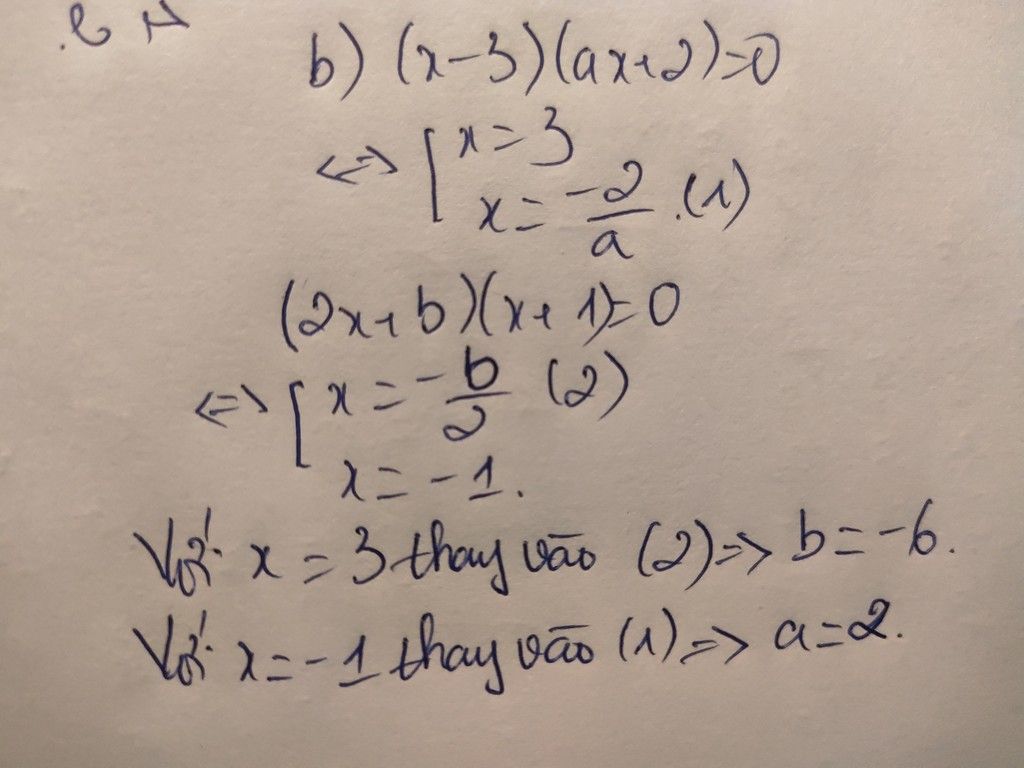 b) (x-3)(ax+2)=0
<=> [ x = 3
x = -2/a .(1)
(2x+b)(x+1)=0
<=> [ x = -b/2 (2)
x = -1.
Với x = 3 thay vào (2) => b = -6.
Với x = -1 thay vào (1) => a = 2.